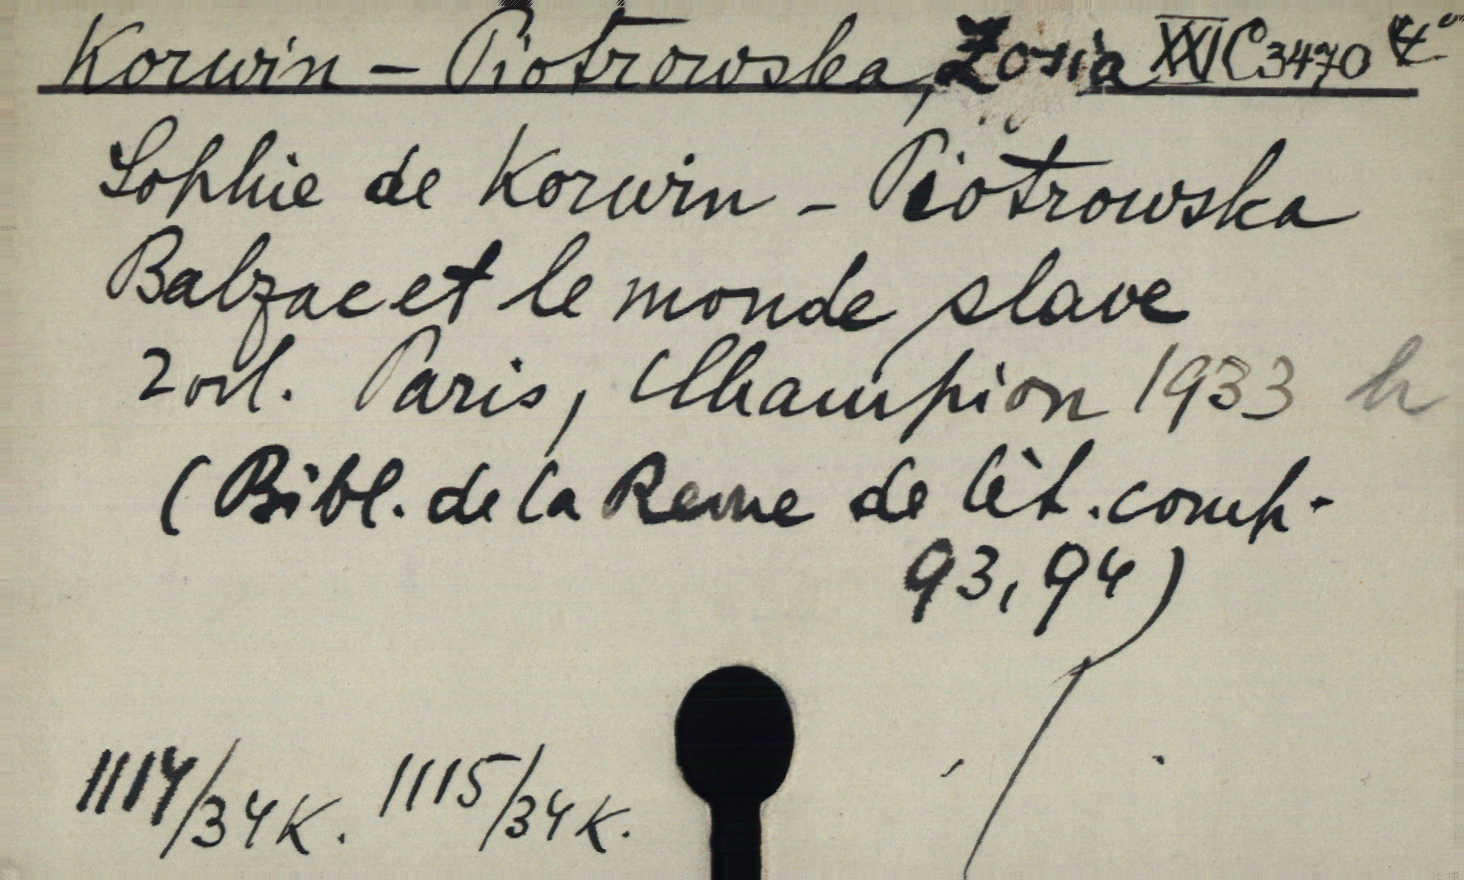 Korwin - Piotrowska, Zosia XXI C 3470
Sophie de Korwin - Piotrowska
Balzac et le monde slave
2 vol. Paris, Champion 1933 h
(Bibl. de la Revue de lit. comp.
93, 94)
1114/34 K. 1115/34 K.